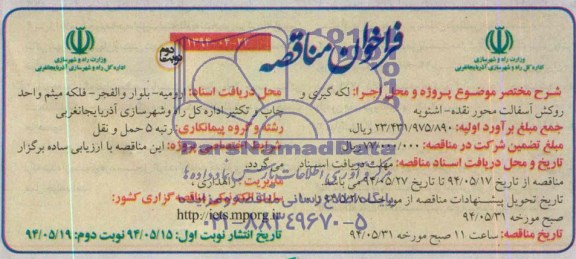 فراخوان مناقصه
نوبت دوم
۱۳۹۴-۰۴-۲۲
وزارت راه و شهرسازی
اداره کل راه و شهرسازی آذربایجانغربی
وزارت راه و شهرسازی
اداره کل راه و شهرسازی آذربایجانغربی
شرح مختصر موضوع پروژه و محل اجرا: لکه گیری و
روکش آسفالت محور نقده- اشنویه
جمع مبلغ برآورد اولیه: ۲۳/۴۳۱/۹۷۵/۸۹۰ ریال،
مبلغ تضمین شرکت در مناقصه: ریال
تاریخ و محل دریافت اسناد مناقصه: مهلت دریافت اسناد
مناقصه از تاریخ ۹۴/۰۵/۱۷ تا تاریخ ۹۴/۰۵/۲۷ می باشد.
تاریخ تحویل پیشنهادات مناقصه از مورخه ۹۴/۰۵/۲۸ تا
صبح مورخه ۹۴/۰۵/۳۱
تاریخ مناقصه: ساعت ۱۱ صبح مورخه ۹۴/۰۵/۳۱
محل دریافت اسناد: ارومیه- بلوار والفجر- فلکه میثم واحد
چاپ و تکثیر اداره کل راه وشهرسازی آذربایجانغربی
رشته و گروه پیمانکاری: رتبه ۵ حمل و نقل
شرایط اختصاصی پروژه: این مناقصه با ارزیابی ساده برگزار
می گردد.
مدیریت راهداری،
سایت الکترونیک مناقصه گزاری کشور:
http://iets.mporg.ir
تاریخ انتشار نوبت اول: ۹۴/۰۵/۱۵ نوبت دوم: ۹۴/۰۵/۱۹
ParsNamadData
پایگاه اطلاع رسانی مناقصه و مزایده
۰۲۱-۸۸۳۴۹۶۷۰-۵